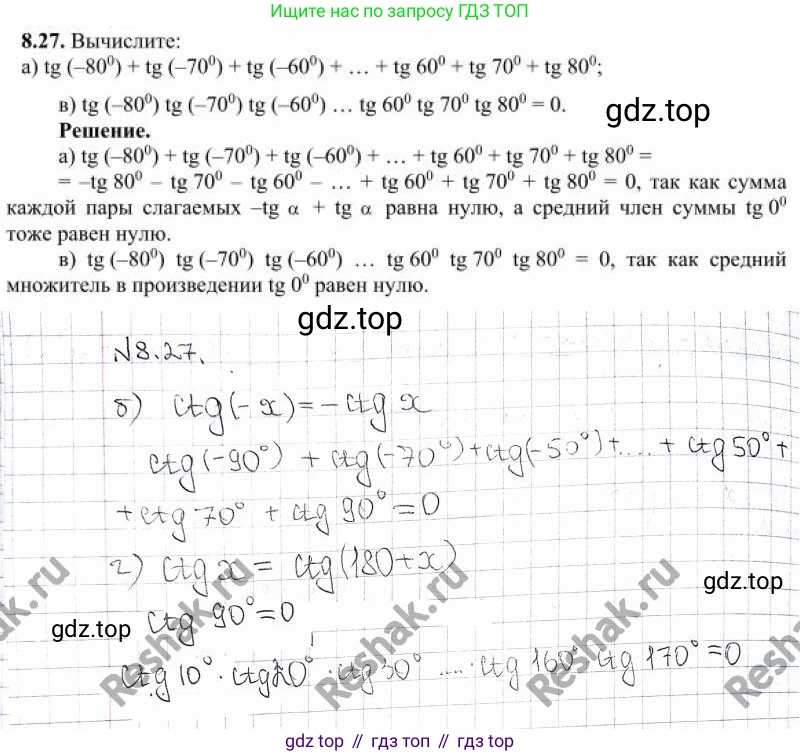 Решение задач ГДЗ ТОП
8.27. Вычислите:
а) tg (–80⁰) + tg (–70⁰) + tg (–60⁰) + … + tg 60⁰ + tg 70⁰ + tg 80⁰;
в) tg (–80⁰) tg (–70⁰) tg (–60⁰) … tg 60⁰ tg 70⁰ tg 80⁰ = 0.
gdz.top
Решение.
а) tg (–80⁰) + tg (–70⁰) + tg (–60⁰) + … + tg 60⁰ + tg 70⁰ + tg 80⁰ =
= –tg 80⁰ – tg 70⁰ – tg 60⁰ – … + tg 60⁰ + tg 70⁰ + tg 80⁰ = 0, так как сумма
каждой пары слагаемых –tg α + tg α равна нулю, а средний член суммы tg 0⁰
тоже равен нулю.
в) tg (–80⁰) tg (–70⁰) tg (–60⁰) … tg 60⁰ tg 70⁰ tg 80⁰ = 0, так как средний
множитель в произведении tg 0⁰ равен нулю.
gdz.top
N8.27.
б) ctg(-x)=-ctg x
ctg(-90°) + ctg(-70°)+ctg(-50°)+....+ ctg 50°+
+ctg 70° + ctg 90°=0
г) ctg x = ctg(180+x)
gdz.top
ctg 90°=0
gdz.top
ctg 10° · ctg 20° · ctg 30° .... · ctg 160° ctg 170° =0
Reshak.ru
Reshak.ru
Reshak.ru
Reshak.ru
gdz.top // гдз топ // gdz.top